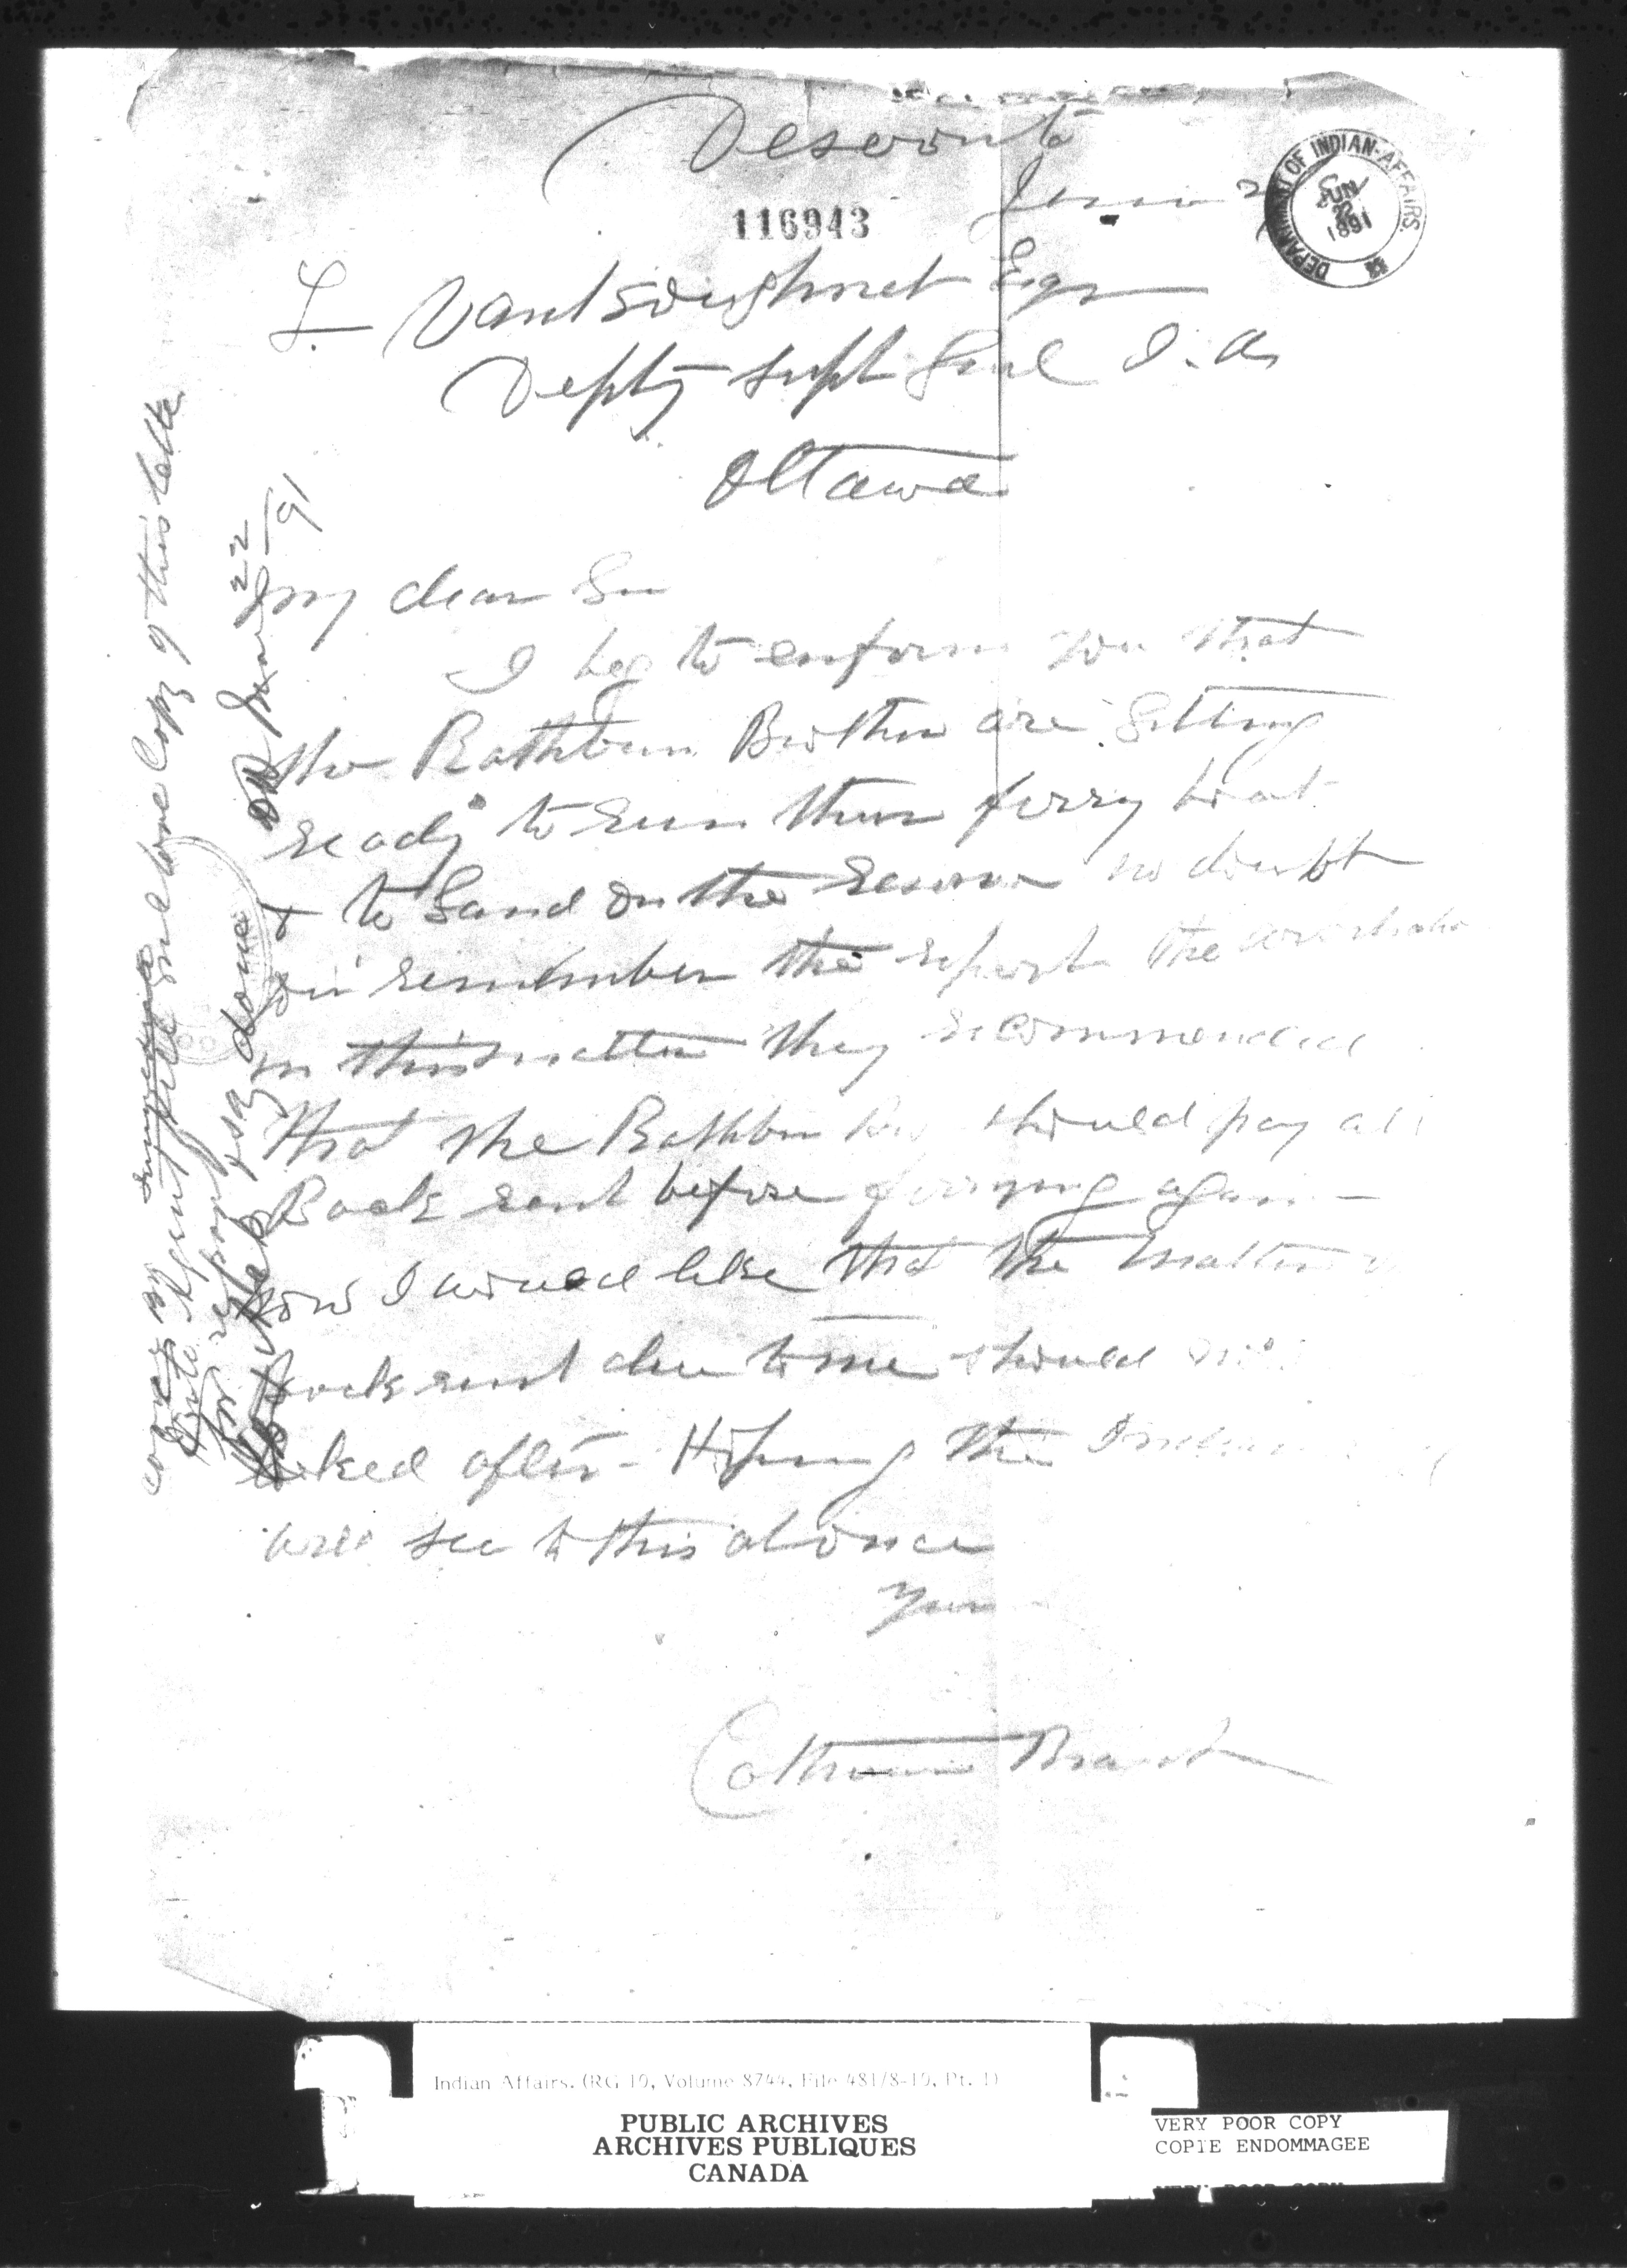 Deseronto
June 2
116943
DEPARTMENT OF INDIAN-AFFAIRS.
JUN
2
1891
L. Vankoughnet Esqr
Depty Supt Genl I. A
Ottawa
My dear Sir
I beg to enform you that
the Rathbun Brother are getting
ready to run their ferry boat
& to land on the reserve no doubt
you remember the report the
in this matter they recommended
that the Rathbun should pay all
Back rent before ferrying again -
now I would like that the matter
back rent due to me should
looked after - Hoping the Indian
will see to this at once
Yours
Catherine Brant
write Agent
Copy of this letter
for report & say
done
June 22
91
Indian Affairs. (RG 10, Volume 8744, File 481/8-10, Pt. 1)
PUBLIC ARCHIVES
ARCHIVES PUBLIQUES
CANADA
VERY POOR COPY
COPIE ENDOMMAGEE